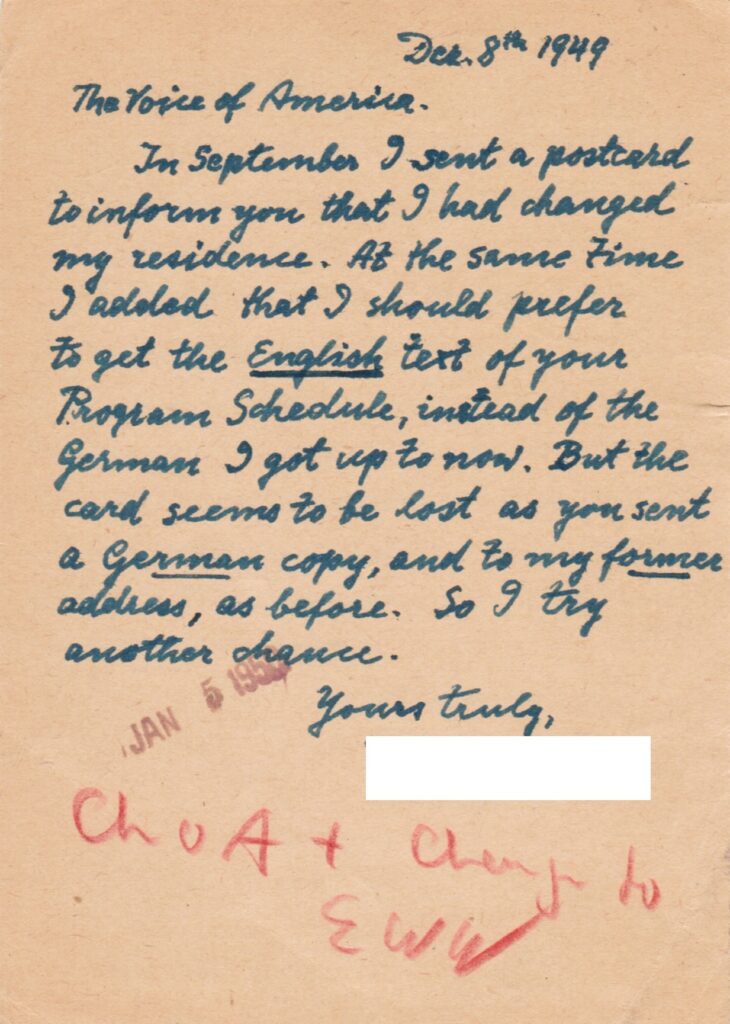 Dez. 8th 1949
The Voice of America.
In September I sent a postcard
to inform you that I had changed
my residence. At the same time
I added that I should prefer
to get the English text of your
Program Schedule, instead of the
German I got up to now. But the
card seems to be lost as you sent
a German copy, and to my former
address, as before. So I try
another chance.
JAN 5 1950
Yours truly,
Ch o A + Change to
EWW